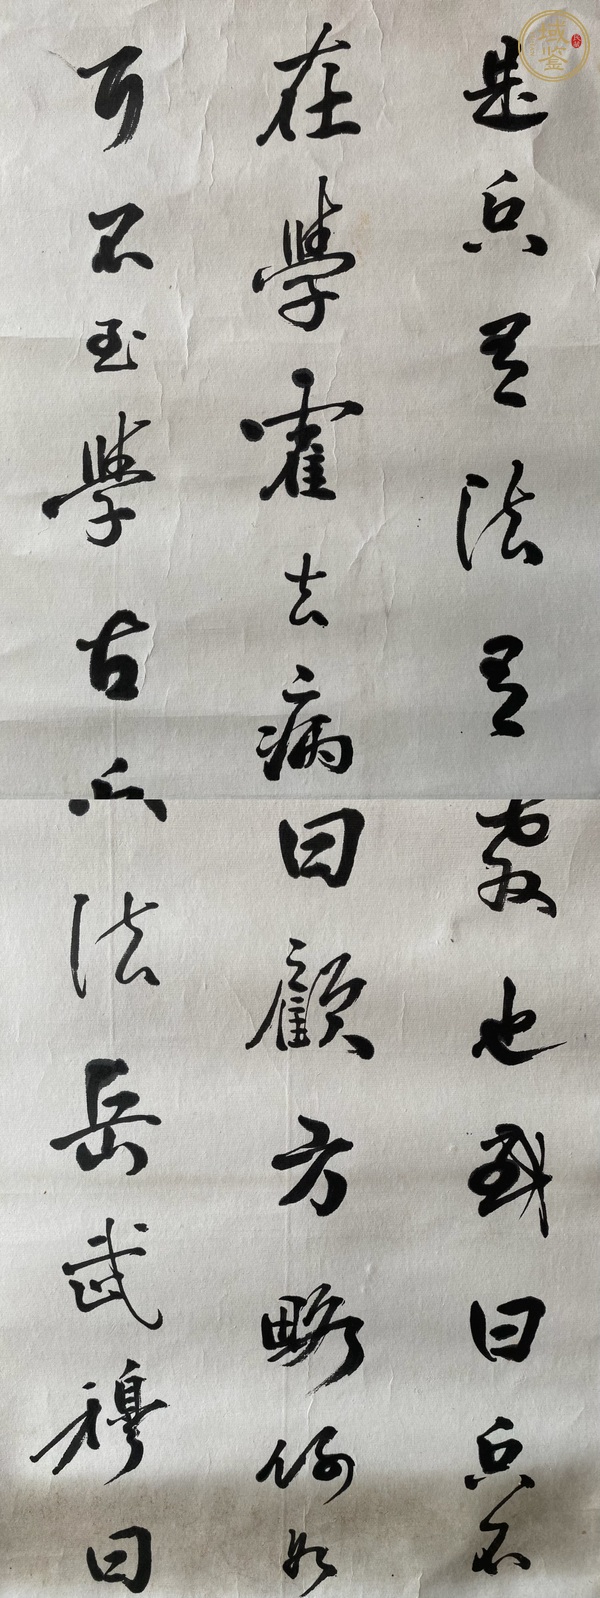 是兵有法有教也或曰兵不
在學霍去病曰顧方略何如
耳不至學古兵法岳武穆曰